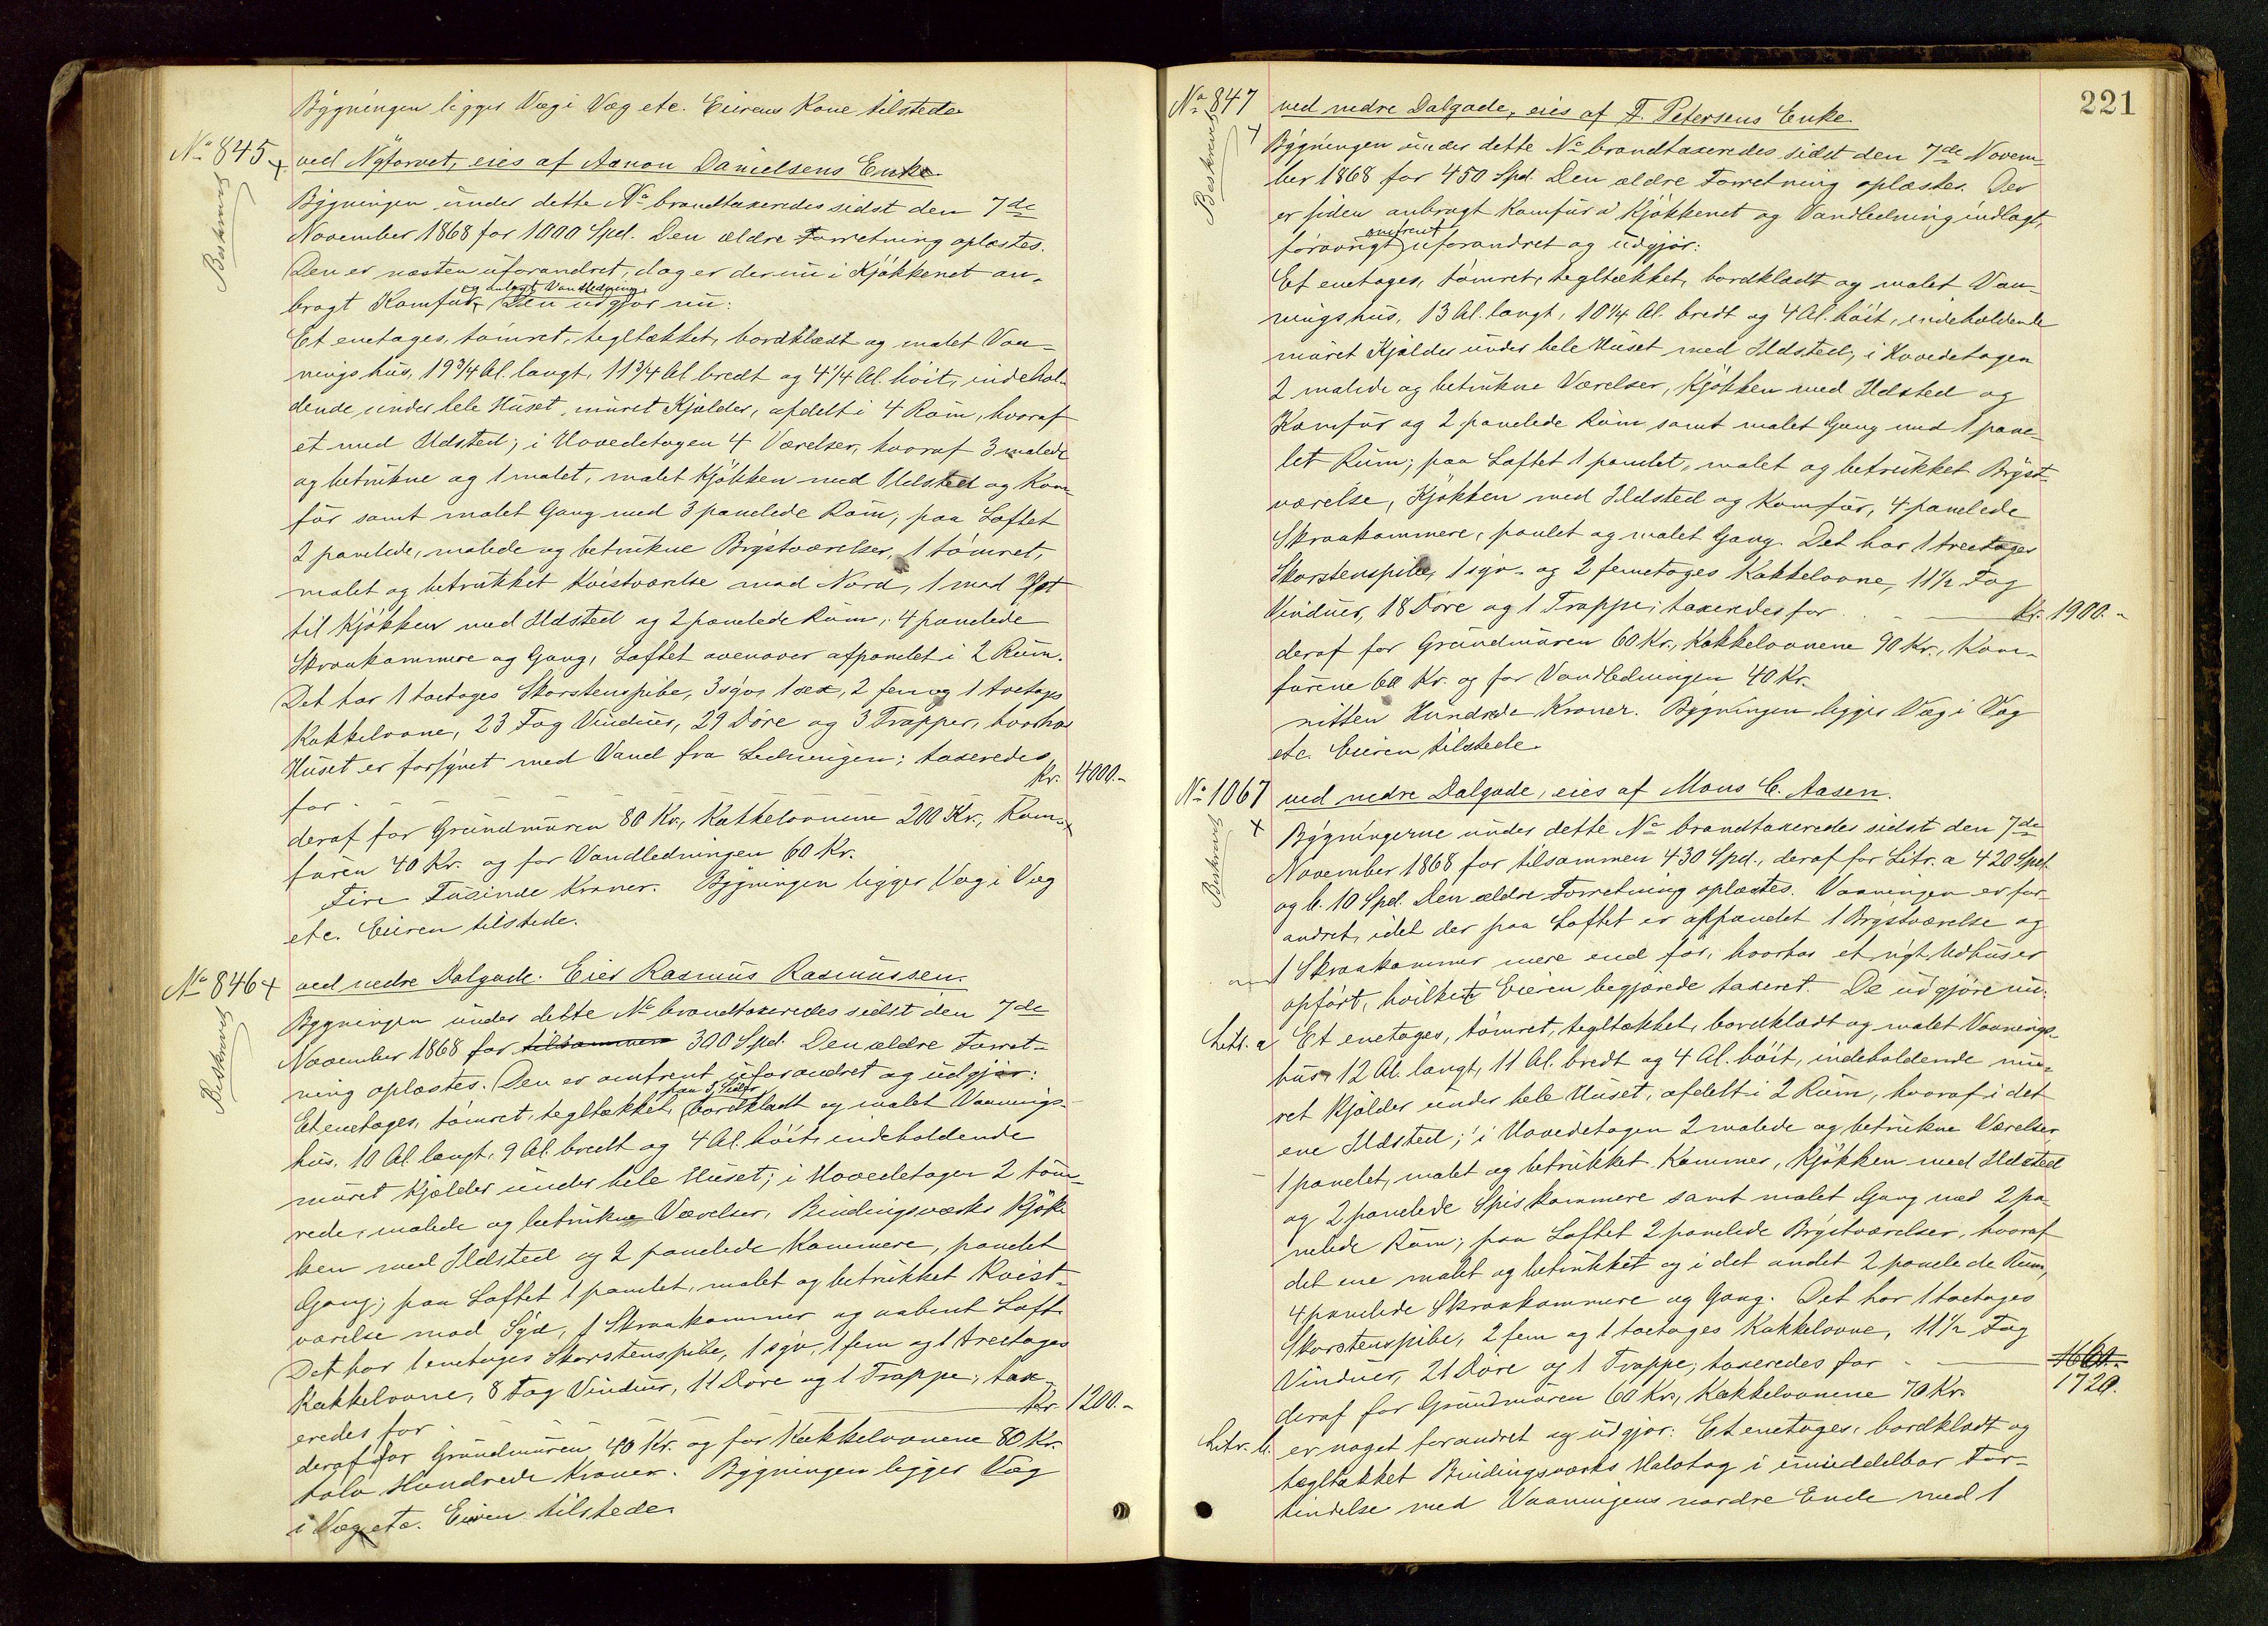 Bygningen ligger Væg i Væg etc. Eierens Kone tilstede
No 845 ved Nytorvet, eies af Aanon Danielsens Enke
Beskrevet
Bygningen under dette No brandtaxeredes sidst den 7de
November 1868 for 1000 Spd. Den ældre Forretning oplæstes.
Den er næsten uforandret, dog er der nu i Kjøkkenet an-
bragt Komfur og indlagt Vandledning. Den udgjør nu:
Et enetages, tømret, tegltækket, bordklædt og malet Vaa-
ningshus, 19 3/4 Al. langt, 11 3/4 Al. bredt og 4 1/4 Al. høit, indehol-
dende under hele Huset muret Kjælder, afdelt i 4 Rum, hvoraf
et med Ildsted; i Hovedetagen 4 Værelser, hvoraf 3 malede
og betrukne og 1 malet, malet Kjøkken med Ildsted og Kom-
fur samt malet Gang med 3 panelede Rum; paa Loftet
2 panelede, malede og betrukne Brystværelser, 1 tømret,
malet og betrukket Kvistværelse mod Nord, 1 mod Øst
til Kjøkken med Ildsted og 2 panelede Rum, 4 panelede
Skraakammere og Gang, Loftet ovenover afpanelet i 2 Rum.
Det har 1 toetages Skorstenspibe, 3 syv, 1 sex, 2 fem og 1 toetages
Kakkelovne, 23 Fag Vinduer, 29 Døre og 3 Trapper, hvorhos
Huset er forsynet med Vand fra Ledningen; taxeredes
for Kr. 4000.-
deraf for Grundmuren 80 Kr., Kakkelovnene 200 Kr., Kom-
furen 40 Kr. og for Vandledningen 60 Kr.
Fire Tusinde Kroner. Bygningen ligger Væg i Væg
etc. Eieren tilstede.
No 846 ved nedre Dalgade. Eier Rasmus Rasmussen.
Beskrevet
Bygningen under dette No brandtaxeredes sidst den 7de
November 1868 for tilsammen 300 Spd. Den ældre Forret-
ning oplæstes. Den er omtrent uforandret og udgjør:
Et enetages, tømret, tegltækket, paa 3 Sider bordklædt og malet Vaanings-
hus, 10 Al. langt, 9 Al. bredt og 4 Al. høit, indeholdende
muret Kjælder under hele Huset; i Hovedetagen 2 tøm-
rede, malede og betrukne Værelser, Bindingsværks Kjøk-
ken med Ildsted og 2 panelede Kammere, panelet
Gang; paa Loftet 1 panelet, malet og betrukket Kvist-
værelse mod Syd, 1 Skraakammer og aabent Loft.
Det har 1 enetages Skorstenspibe, 1 syv, 1 fem og 1 treetages
Kakkelovne, 8 Fag Vinduer, 11 Døre og 1 Trappe; tax-
eredes for Kr. 1200.-
deraf for Grundmuren 40 Kr. og for Kakkelovnene 80 Kr.
tolv Hundrede Kroner. Bygningen ligger Væg
i Væg etc. Eieren tilstede.
221
No 847 ved nedre Dalgade, eies af F. Petersens Enke
Beskrevet
Bygningen under dette No brandtaxeredes sidst den 7de Novem-
ber 1868 for 450 Spd. Den ældre Forretning oplæstes. Der
er siden anbragt Komfur i Kjøkkenet og Vandledning indlagt,
forøvrigt omtrent uforandret og udgjør:
Et enetages, tømret, tegltækket, bordklædt og malet Vaa-
ningshus, 13 Al. langt, 10 1/4 Al. bredt og 4 Al. høit, indeholdende
muret Kjælder under hele Huset med Ildsted, i Hovedetagen
2 malede og betrukne Værelser, Kjøkken med Ildsted og
Komfur og 2 panelede Rum samt malet Gang med 1 pane-
let Rum; paa Loftet 1 panelet, malet og betrukket Bryst-
værelse, Kjøkken med Ildsted og Komfur, 4 panelede
Skraakammere, panlet og malet Gang. Det har 1 treetages
Skorstenspibe, 1 syv- og 2 femetages Kakkelovne, 11 1/2 Fag
Vinduer, 18 Døre og 1 Trappe; taxeredes for Kr. 1900.-
deraf for Grundmuren 60 Kr., Kakkelovnene 90 Kr., Kom-
furene 60 Kr. og for Vandledningen 40 Kr.
nitten Hundrede Kroner. Bygningen ligger Væg i Væg
etc. Eieren tilstede.
No 1067 ved nedre Dalgade, eies af Mons C. Aasen.
Beskrevet
Bygningerne under dette No brandtaxeredes sidst den 7de
November 1868 for tilsammen 430 Spd., deraf for Litr. a 420 Spd.
og b. 10 Spd. Den ældre Forretning oplæstes. Vaaningen er for-
andret, idet der paa Loftet er afpanelet 1 Brystværelse og
1 Skraakammer mere end før, hvorhos et nyt Udhus er
opført, hvilket Eieren begjærede taxeret. De udgjøre nu:
Litr. a Et enetages, tømret, tegltækket, bordklædt og malet Vaanings-
hus, 12 Al. langt, 11 Al. bredt og 4 Al. høit, indeholdende mu-
ret Kjælder under hele Huset, afdelt i 2 Rum, hvoraf i det
ene Ildsted; i Hovedetagen 2 malede og betrukne Værelser
1 panelet, malet og betrukket Kammer, Kjøkken med Ildsted
og 2 panelede Spiskammere samt malet Gang med 2 pa-
nelede Rum; paa Loftet 2 panelede Brystværelser, hvoraf
det ene malet og betrukket og i det andet 2 panelede Rum,
4 panelede Skraakammere og Gang. Det har 1 toetages
Skorstenspibe, 2 fem og 1 toetages Kakkelovne, 11 1/2 Fag
Vinduer, 21 Døre og 1 Trappe; taxeredes for
1720.
deraf for Grundmuren 60 Kr., Kakkelovnene 70 Kr.
Litr. b. er noget forandret og udgjør: Et enetages, bordklædt og
tegltækket Bindingsværks Halvtag i umiddelbar For-
bindelse med Vaaningens nordre Ende med 1